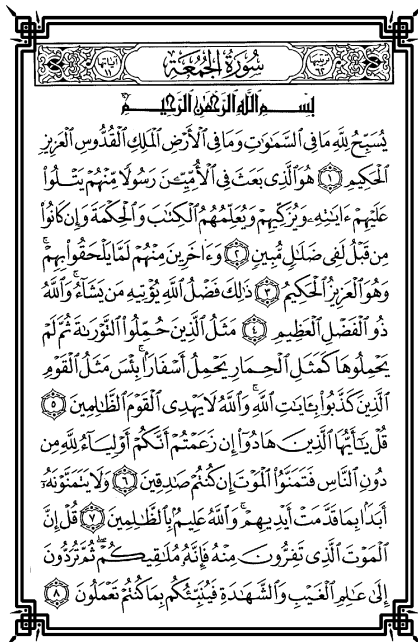 ترتيبها ٦٢ سورة الجمعة آياتها ١١
بِسْمِ اللَّهِ الرَّحْمَٰنِ الرَّحِيمِ
يُسَبِّحُ لِلَّهِ مَا فِي السَّمَٰوَٰتِ وَمَا فِي الْأَرْضِ الْمَلِكِ الْقُدُّوسِ الْعَزِيزِ
الْحَكِيمِ ١ هُوَ الَّذِي بَعَثَ فِي الْأُمِّيِّۦنَ رَسُولًا مِّنْهُمْ يَتْلُوا۟
عَلَيْهِمْ ءَايَٰتِهِۦ وَيُزَكِّيهِمْ وَيُعَلِّمُهُمُ الْكِتَٰبَ وَالْحِكْمَةَ وَإِن كَانُوا۟
مِن قَبْلُ لَفِي ضَلَٰلٍ مُّبِينٍ ٢ وَءَاخَرِينَ مِنْهُمْ لَمَّا يَلْحَقُوا۟ بِهِمْ ۚ
وَهُوَ الْعَزِيزُ الْحَكِيمُ ٣ ذَٰلِكَ فَضْلُ اللَّهِ يُؤْتِيهِ مَن يَشَآءُ ۚ وَاللَّهُ
ذُو الْفَضْلِ الْعَظِيمِ ٤ مَثَلُ الَّذِينَ حُمِّلُوا۟ التَّوْرَىٰةَ ثُمَّ لَمْ
يَحْمِلُوهَا كَمَثَلِ الْحِمَارِ يَحْمِلُ أَسْفَارًۢا ۚ بِئْسَ مَثَلُ الْقَوْمِ
الَّذِينَ كَذَّبُوا۟ بِـَٔايَٰتِ اللَّهِ ۚ وَاللَّهُ لَا يَهْدِي الْقَوْمَ الظَّٰلِمِينَ ٥
قُلْ يَٰٓأَيُّهَا الَّذِينَ هَادُوٓا۟ إِن زَعَمْتُمْ أَنَّكُمْ أَوْلِيَآءُ لِلَّهِ مِن
دُونِ النَّاسِ فَتَمَنَّوُا۟ الْمَوْتَ إِن كُنتُمْ صَٰدِقِينَ ٦ وَلَا يَتَمَنَّوْنَهُۥٓ
أَبَدًۢا بِمَا قَدَّمَتْ أَيْدِيهِمْ ۚ وَاللَّهُ عَلِيمٌۢ بِالظَّٰلِمِينَ ٧ قُلْ إِنَّ
الْمَوْتَ الَّذِي تَفِرُّونَ مِنْهُ فَإِنَّهُۥ مُلَٰقِيكُمْ ۖ ثُمَّ تُرَدُّونَ
إِلَىٰ عَٰلِمِ الْغَيْبِ وَالشَّهَٰدَةِ فَيُنَبِّئُكُم بِمَا كُنتُمْ تَعْمَلُونَ ٨